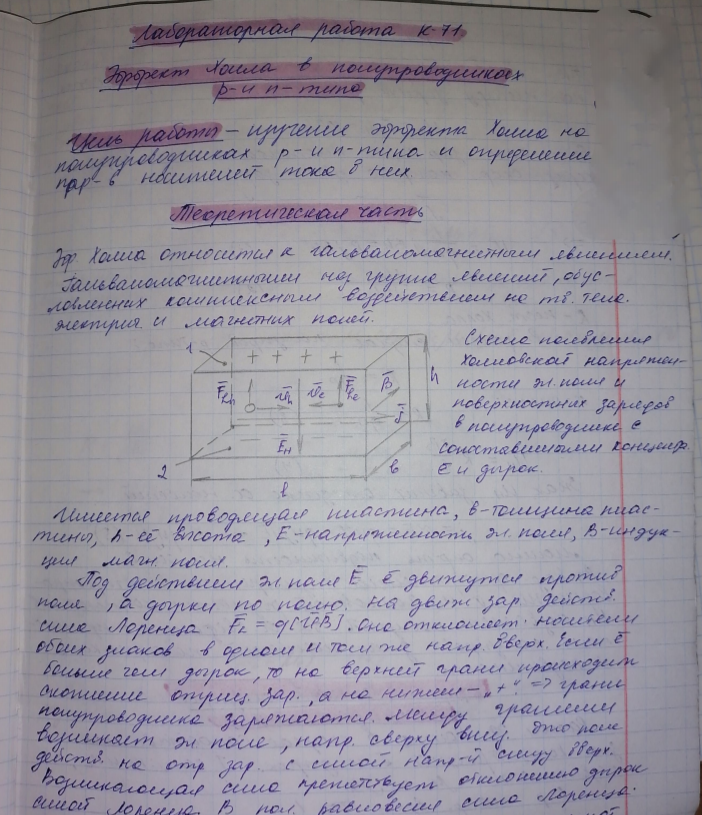 Лабораторная работа к-71
Эффект Холла в полупроводниках
p- и n-типа
Цель работы – изучение эффекта Холла на
полупроводниках p- и n-типа и определение
пар-в носителей тока в них.
Теоретическая часть
Эф Холла относится к гальваномагнитным явлениям.
Гальваномагнитными наз группа явлений, обус-
ловленных комплексным воздействием на тв. тела
электрич. и магнитных полей.
1
+ + + +
F̄лh v̄h v̄e F̄лe B̄
j̄
ĒH
2
l
b
h
Схема появления
холловской напряжен-
ности эл. поля и
поверхностных зарядов
в полупроводнике с
сопоставимыми концентр.
ē и дырок.
Имеется проводящая пластина, b-толщина плас-
тины, h-её высота, E-напряженность эл. поля, B-индук-
ция магн поля.
Под действием эл. поля Ē ē движутся против
поля, а дырки по полю. На движ зар. действ.
сила Лоренца F̄л = q[ῡB̄]. Она отклоняет носители
обоих знаков в одном и том же напр. вверх. Если ē
больше чем дырок, то на верхней грани происходит
скопление отриц. зар., а на нижней – „+“. => грани
полупроводника заряжаются. Между гранями
возникает эл поле, напр. сверху вниз. Это поле
действ. на отр зар. с силой напр-й снизу вверх.
Возникающая сила препятствует отклонению дырок
силой Лоренца. В пол. равновесия сила Лоренца